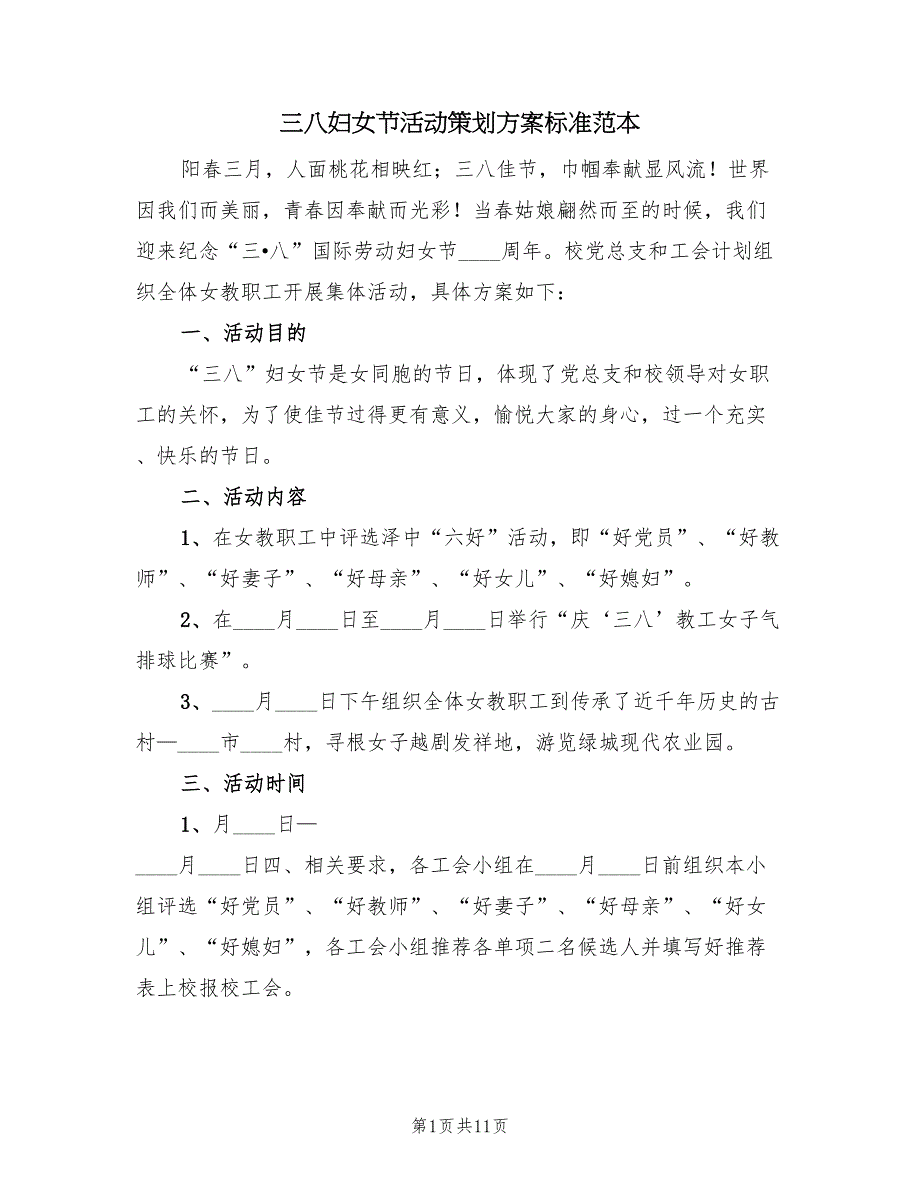 三八妇女节活动策划方案标准范本
阳春三月，人面桃花相映红；三八佳节，巾帼奉献显风流！世界
因我们而美丽，青春因奉献而光彩！当春姑娘翩然而至的时候，我们
迎来纪念“三•八”国际劳动妇女节____周年。校党总支和工会计划组
织全体女教职工开展集体活动，具体方案如下：
一、活动目的
“三八”妇女节是女同胞的节日，体现了党总支和校领导对女职
工的关怀，为了使佳节过得更有意义，愉悦大家的身心，过一个充实
、快乐的节日。
二、活动内容
1、在女教职工中评选泽中“六好”活动，即“好党员”、“好教
师”、“好妻子”、“好母亲”、“好女儿”、“好媳妇”。
2、在____月____日至____月____日举行“庆‘三八’教工女子气
排球比赛”。
3、____月____日下午组织全体女教职工到传承了近千年历史的古
村—____市____村，寻根女子越剧发祥地，游览绿城现代农业园。
三、活动时间
1、月____日—
____月____日四、相关要求，各工会小组在____月____日前组织本小
组评选“好党员”、“好教师”、“好妻子”、“好母亲”、“好女
儿”、“好媳妇”，各工会小组推荐各单项二名候选人并填写好推荐
表上校报校工会。
第1页共11页